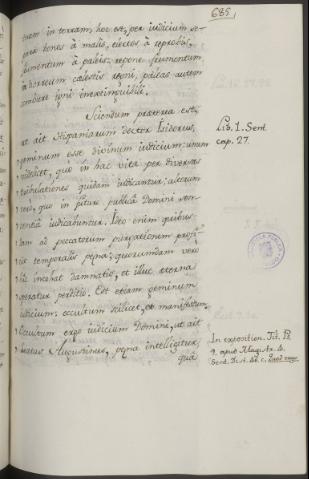 685.
tram in terram, hoc est, per iudicium se-
parat bonos à malis, electos à reprobis,
frumentum à paleis, repone frumentum
in horreum caelestis regni, paleas autem
comburet igni inextinguibili.
Sciendum præterea est,
ut ait Hispaniarum doctor Isidorus,
geminum esse divinum iudicium: unum
quo in hac vita per diversas
tribulationes quidam iudicantur: alterum
vero, quo in futura Domini
iudicabuntur. Ideo enim quibus-
dam ad peccatorum purgationem
temporalis pęna; quorumdam vero
incohat damnatio, et illuc æterna
speratur perditio. Est etiam geminum
iudicium, occultum scilicet, et manifestum.
Occultum ergo iudicium Domini, ut ait
beatus Augustinus, pęna intelligitur,
quâ
Lib. 1. Sent.
cap. 27.
In exposition. Tit. Ps.
9. apud Magistr. L.
Sent.